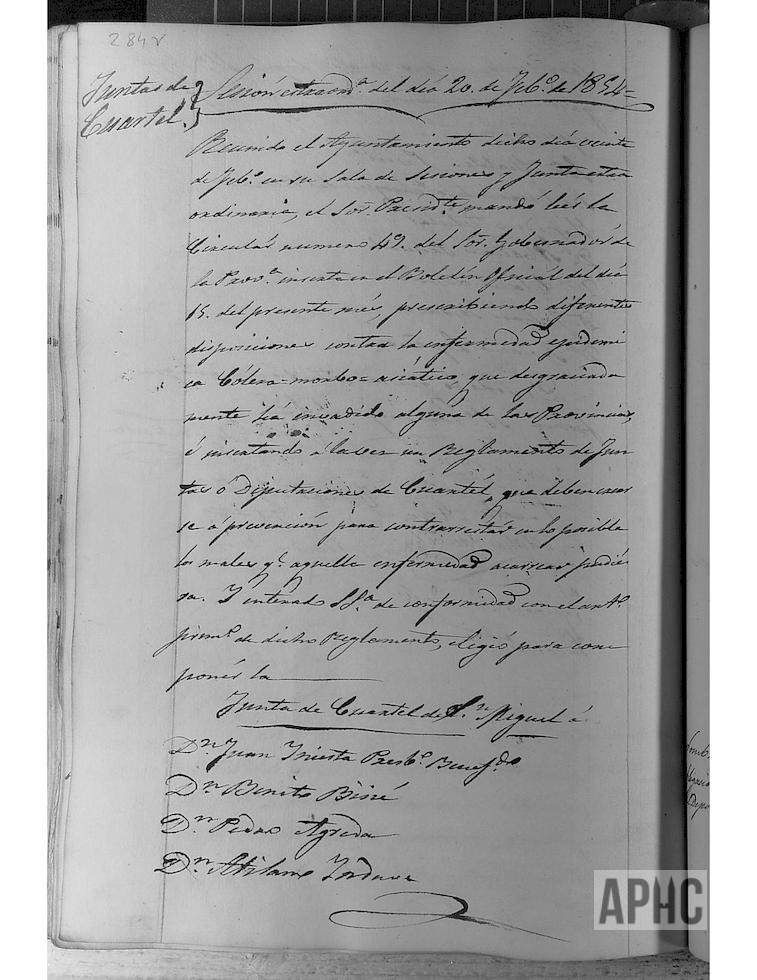 284v
Juntas de
Cuartel.
Sesión extraordª. del día 20. de Febº. de 1854=
Reunido el Ayuntamiento dicho día veinte
de Febº. en su Sala de Sesiones y Junta extra
ordinaria, el Sor. Presidte. mandó leér la
Circulár numero 49. del Sor. Gobernadór de
la Provª. inserta en el Boletín Oficiál del día
15. del presente més prescribiendo diferentes
disposiciones contra la enfermedad epidemi
ca Cólera=morbo=asiático, que desgraciada
mente há invadido alguna de las Provincias,
é insertando á la vez un Reglamento de Jun
tas ó Diputaciones de Cuartél, que deben crear
se á prevención para contrarrestár en lo posible
los males qe. aquella enfermedad acarrear pudié
ra. Y enterado S.Sª. de conformidad con el artº.
primº. de dicho Reglamento, eligió para com
ponér la
Junta de Cuartel de Sn. Miguel á
Dn. Juan Iniesta Presbº. Benefdo.
Dn. Benito
Dn. Pedro Agreda
Dn. Atilano
APHC